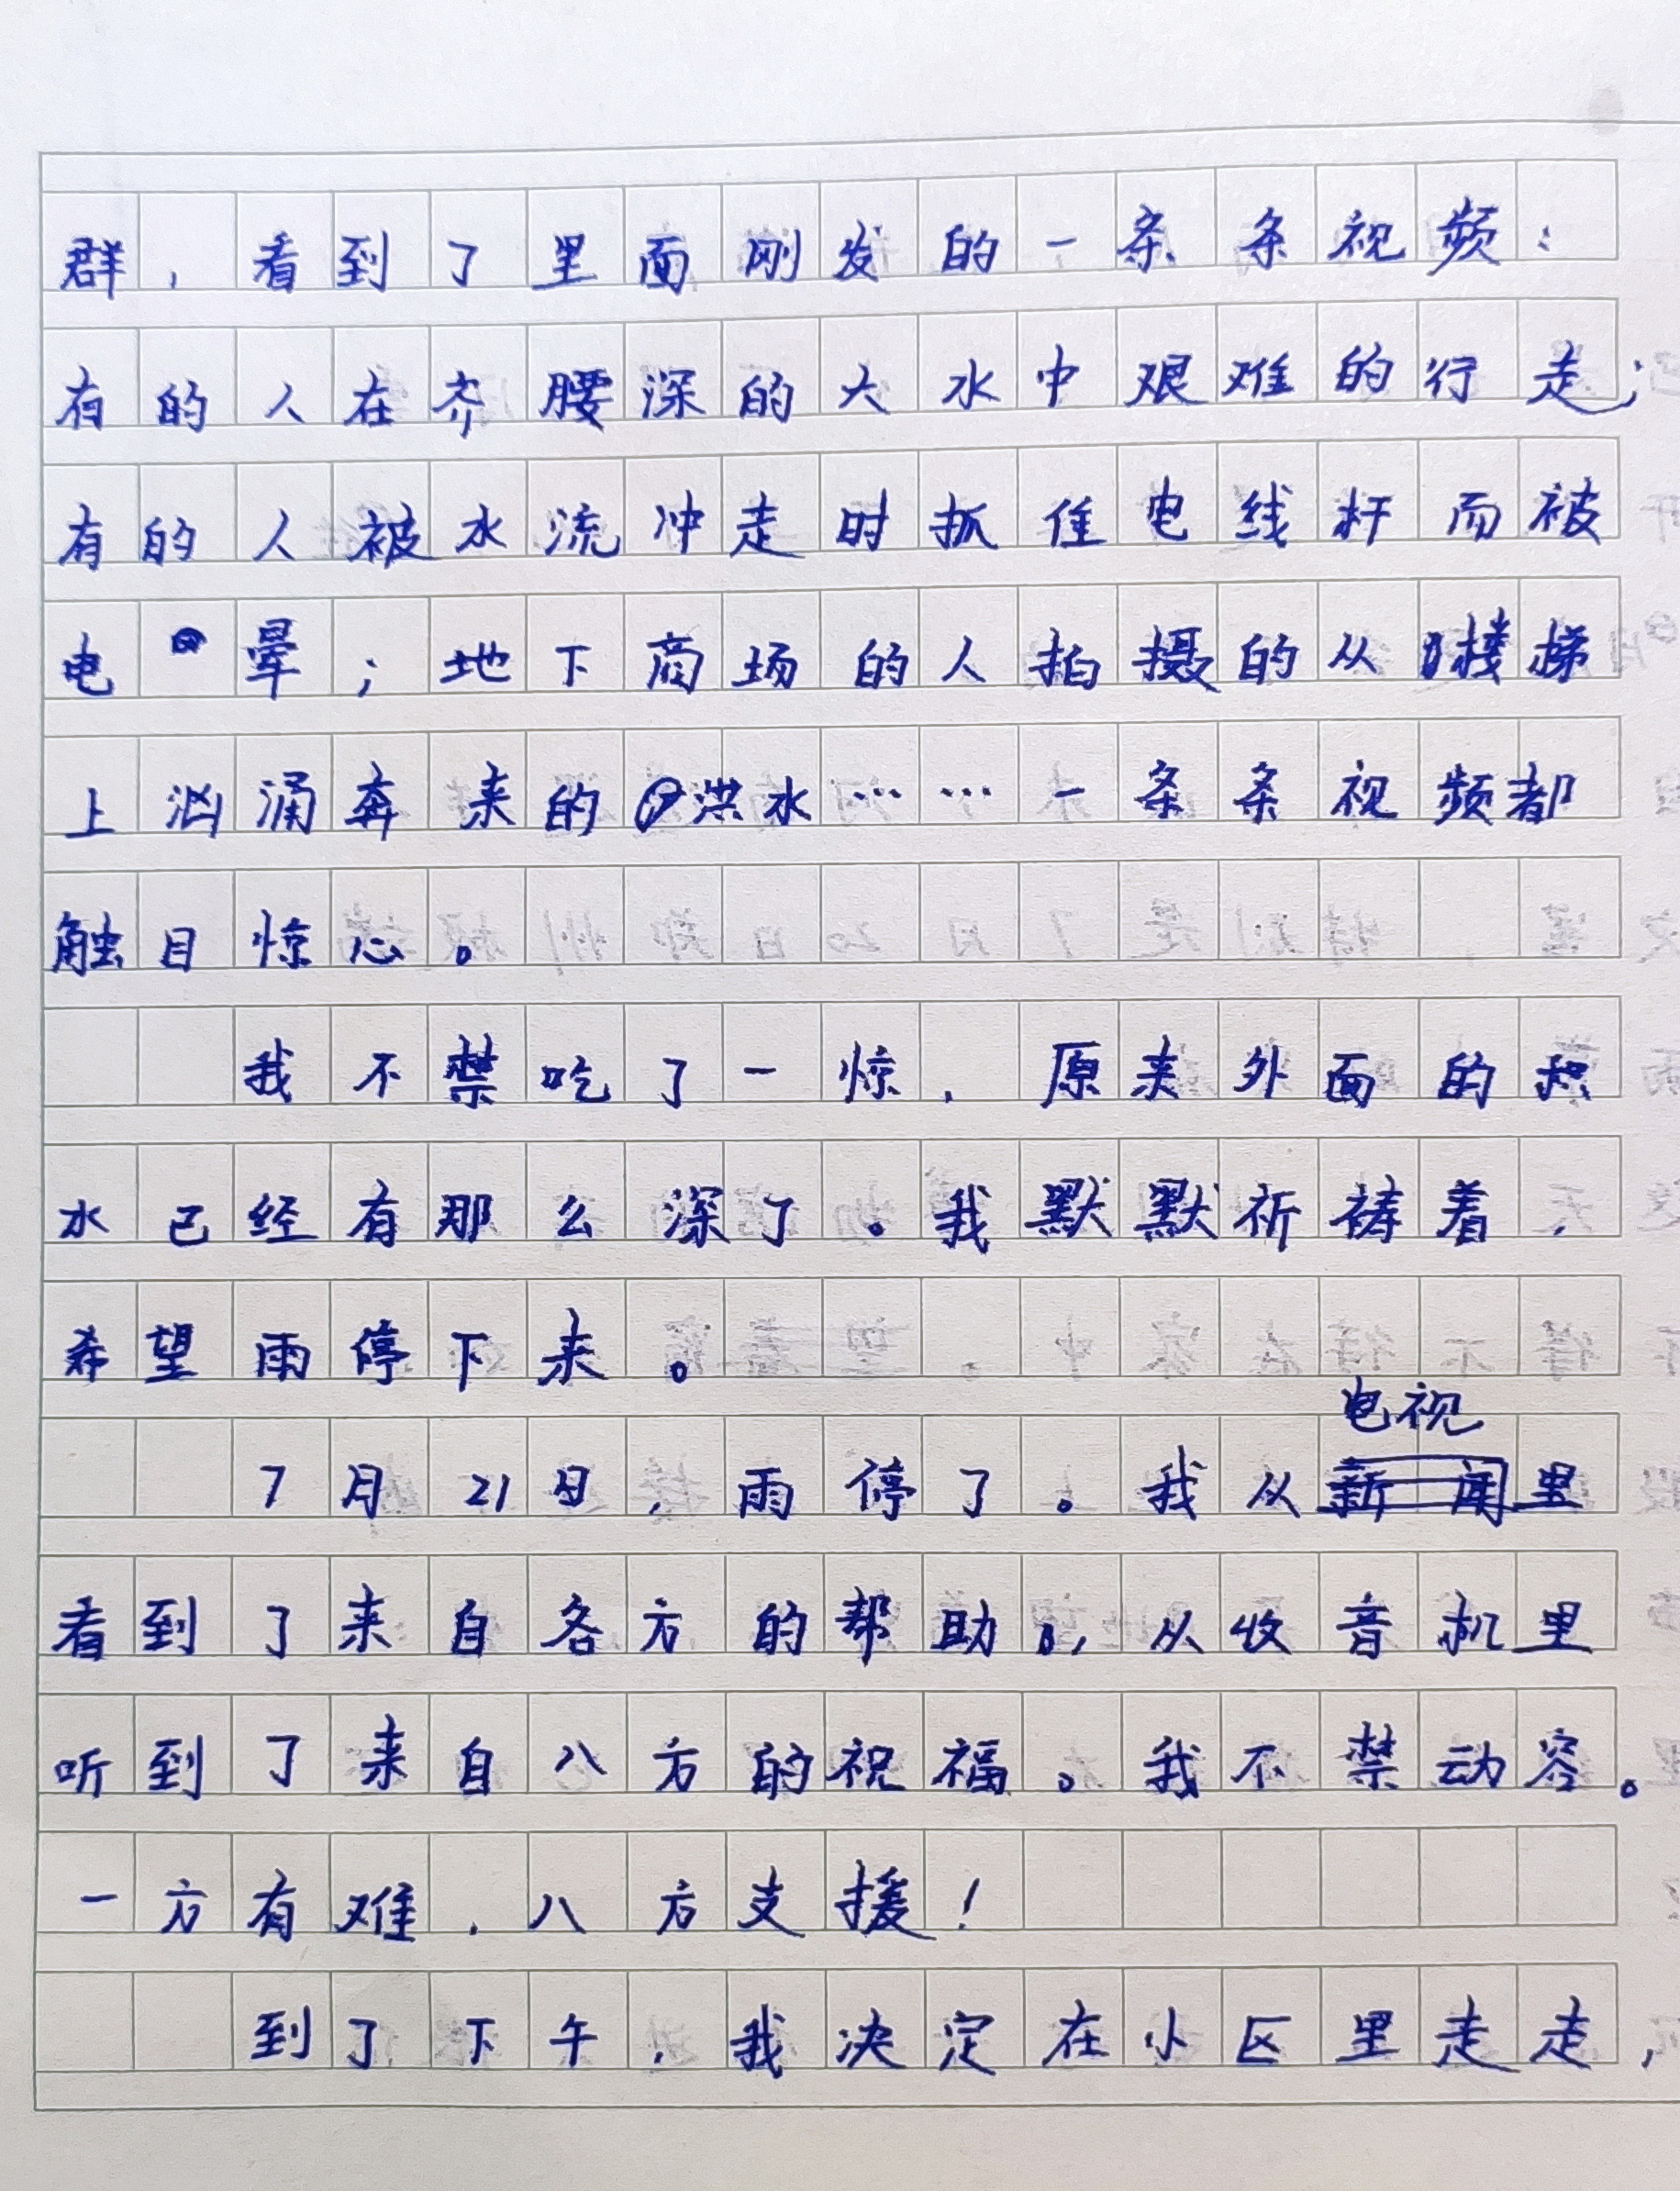 群，看到了里面刚发的一条条视频：
有的人在齐腰深的大水中艰难的行走；
有的人被水流冲走时抓住电线杆而被
电晕；地下商场的人拍摄的从楼梯
上汹涌奔来的洪水……一条条视频都
触目惊心。
我不禁吃了一惊，原来外面的积
水已经有那么深了。我默默祈祷着，
希望雨停下来。
电视
7月21日，雨停了。我从新闻里
看到了来自各方的帮助，从收音机里
听到了来自八方的祝福。我不禁动容。
一方有难，八方支援！
到了下午，我决定在小区里走走，